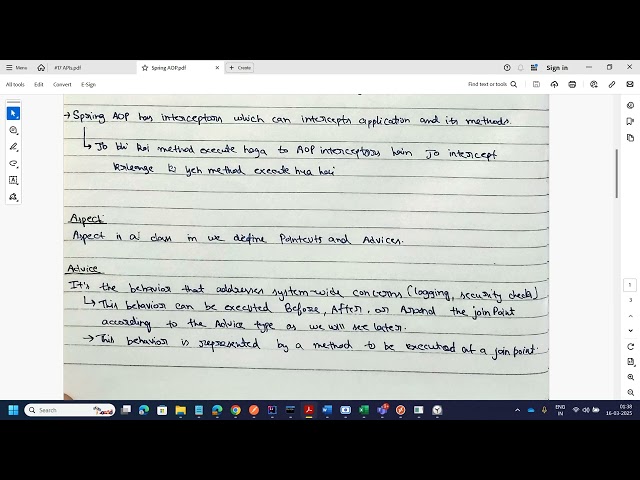 Menu
#17 APIs.pdf
Spring AOP.pdf
Create
Sign in
All tools
Edit
Convert
E-Sign
Find text or tools
→ Spring AOP has interceptors which can intercepts application and its methods.
↳ Jo bhi koi method execute hoga to AOP interceptors hain Jo intercept
krlenge ki yeh method execute hua hai
Aspect
Aspect is a class in we define Pointcuts and Advices.
Advice
It's the behavior that addresses system-wide concerns (logging, security checks)
↳ This behavior can be executed Before, After, or Around the join Point
according to the Advice type as we will see later.
→ This behavior is represented by a method to be executed at a join point.
1
3
Search
ENG
IN
01:38
16-03-2025